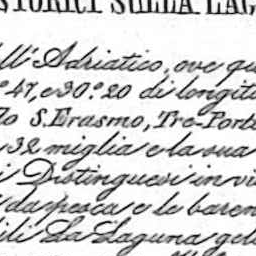 STORICI SULLA LAG
ll' Adriatico, ove
47, e 30.° 20 di longitu
S. Erasmo, Tre-Porti
32 miglia e la sua
Distinguesi in vi
da pesca e le baren
ili La Laguna gela